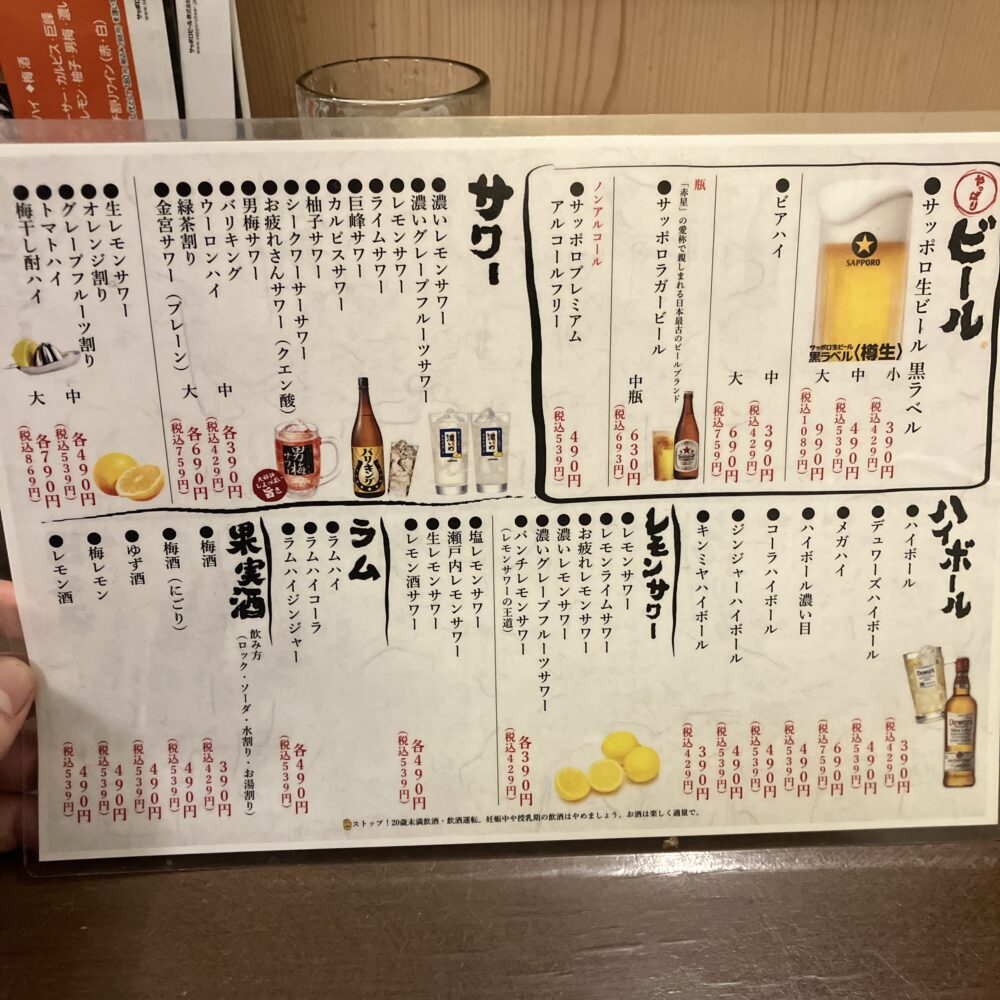 やっぱり
ビール
●サッポロ生ビール 黒ラベル
SAPPORO
サッポロ生ビール
黒ラベル〈樽生〉
小 390円
(税込429円)
中 490円
(税込539円)
大 990円
(税込1089円)
●ビアハイ
中 390円
(税込429円)
大 690円
(税込759円)
瓶
「赤星」の愛称で親しまれる日本最古のビールブランド
●サッポロラガービール
中瓶 630円
(税込693円)
ノンアルコール
●サッポロプレミアム
アルコールフリー
490円
(税込539円)
サワー
●濃いレモンサワー
●濃いグレープフルーツサワー
●レモンサワー
●ライムサワー
●巨峰サワー
●カルピスサワー
●柚子サワー
●シークワーサーサワー
●お疲れさんサワー(クエン酸)
●男梅サワー
●バリキング
●ウーロンハイ
●緑茶割り
●金宮サワー(プレーン)
中 各390円
(税込429円)
大 各690円
(税込759円)
濃いめ
濃いめ
バリキング
男梅
サワー
旨さ
●生レモンサワー
●オレンジ割り
●グレープフルーツ割り
●トマトハイ
●梅干し酎ハイ
中 各490円
(税込539円)
大 各790円
(税込869円)
ハイボール
●ハイボール
390円
(税込429円)
●デュワーズハイボール
490円
(税込539円)
●メガハイ
690円
(税込759円)
●ハイボール濃い目
490円
(税込539円)
●コーラハイボール
490円
(税込539円)
●ジンジャーハイボール
490円
(税込539円)
●キンミヤハイボール
390円
(税込429円)
Dewar's
Dewar's
レモンサワー
●レモンサワー
●レモンライムサワー
●お疲れレモンサワー
●濃いレモンサワー
●濃いグレープフルーツサワー
●パンチレモンサワー
(レモンサワーの王道)
各390円
(税込429円)
●塩レモンサワー
●瀬戸内レモンサワー
●生レモンサワー
●レモン酒サワー
各490円
(税込539円)
ラム
●ラムハイ
●ラムハイコーラ
●ラムハイジンジャー
各490円
(税込539円)
果実酒
飲み方
(ロック・ソーダ・水割り・お湯割り)
●梅酒
390円
(税込429円)
●梅酒(にごり)
490円
(税込539円)
●ゆず酒
490円
(税込539円)
●梅レモン
490円
(税込539円)
●レモン酒
490円
(税込539円)
ストップ!20歳未満飲酒・飲酒運転。妊娠中や授乳期の飲酒はやめましょう。お酒は楽しく適量で。
ハイ ◆梅酒
ーサー・カルピス・巨峰
レモン・柚子・男梅・濃い
割りワイン(赤・白)
サッポロビール株式会社